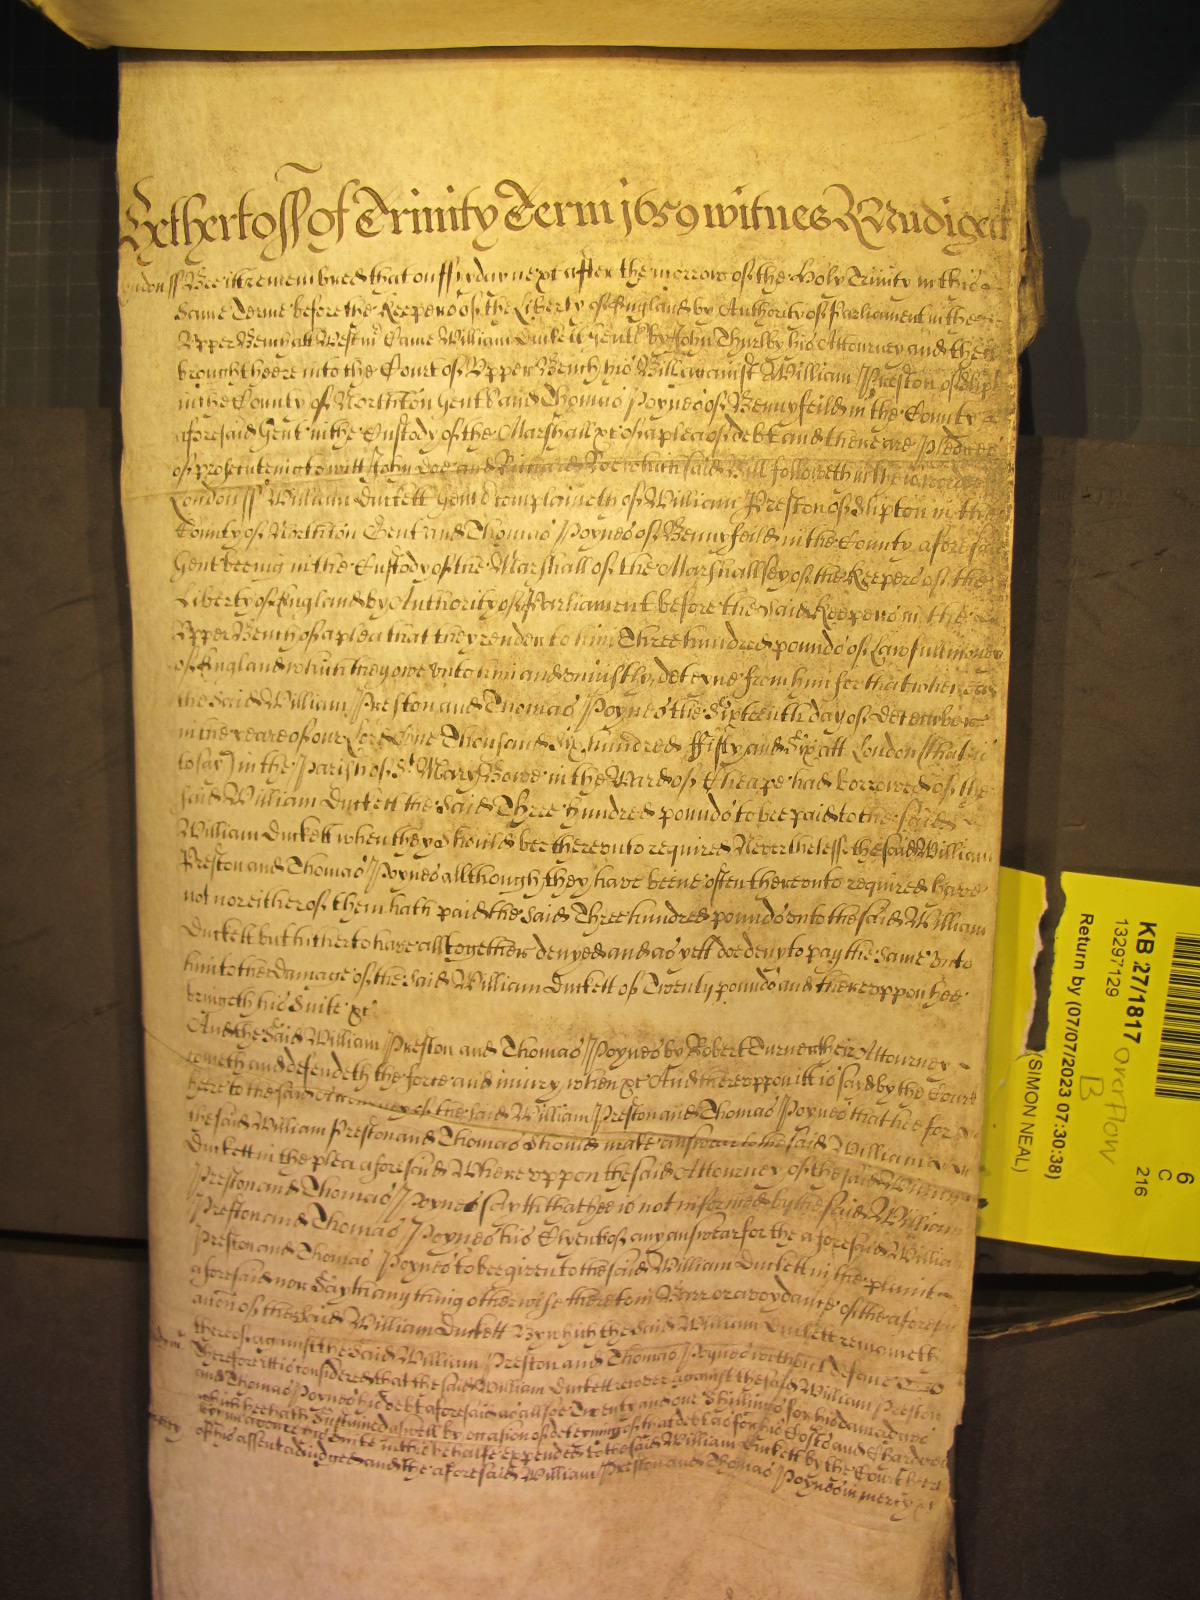 of Trinity Term 1659 witnes R Nudigate
London ss Bee itt remembred that on ffryday next after the morrow of the Holy Trinity in this
same Terme before the Keepers of the Liberty of England by Authority of Parliament in the
Upper Bench att Westmr Came William Duckett Gentl by John Thurlby his Attourney and then
brought heere into the Court of Upper Bench his Bill against William Preston of Slipton
in the County of Northton Gentl and Thomas Poynes of Bennyfeild in the County
aforesaid Gent in the Custody of the Marshall &c of a plea of debt and there are Pledges
of prosecuteing to witt John Doe and Richard Roe which said Bill followeth in these words
London ss William Duckett Gentl complaineth of William Preston of Slipton in the
County of Northton Gent and Thomas Poynes of Bennyfeild in the County aforesaid
Gent beeing in the Custody of the Marshall of the Marshallsey of the Keepers of the
Liberty of England by Authority of Parliament before the said Keepers in the
Upper Bench of a plea that they render to him Three hundred pounds of Lawfull money
of England which they owe unto him and uniustly deteyne from him for that whereas
the said William Preston and Thomas Poynes the Sixteenth day of December
in the yeare of our Lord One Thousand Six hundred ffifty and Six att London (that is
to say) in the Parish of St Mary Bowe in the Ward of Cheape had borrowed of the
said William Duckett the said Three Hundred pounds to bee paid to the said
William Duckett when they should bee thereunto required Neverthelesse the said William
Preston and Thomas Poynes allthough they have beene often thereunto required have
not nor either of them hath paid the said Three hundred pounds unto the said William
Duckett but hitherto have alltogether denyed and as yett doe deny to pay the same unto
him to the Damage of the said William Duckett of Twenty pounds and thereuppon hee
bringeth his Suite &c
And the said William Preston and Thomas Poynes by Robert Turner their Attourney
cometh and defendeth the force and iniury when &c And thereuppon itt is said by the Court
heere to the said Attourney of the said William Preston and Thomas Poynes that hee for
the said William Preston and Thomas should make answear to the said William
Duckett in the plea aforesaid Whereuppon the said Attourney of the said William
Preston and Thomas Poynes sayth that hee is not informed by the said William
Preston and Thomas Poynes his Clyents of any answear for the aforesaid William
Preston and Thomas Poynes to bee given to the said William Duckett in the plaint
aforesaid nor Sayth any thing otherwise there in Barr or avoydance of the aforesaid
accon of the said William Duckett By which the said William Duckett remaineth
thereof against the said William Preston and Thomas Poynes without defence
Therefore itt is considered that the said William Duckett recover against the said William Preston
and Thomas Poynes his debt aforesaid as allsoe Twenty and one Shillings for his damages
which hee hath Sustained as well by occasion of deteyning of that debt as for his Costs and Charges
by him about his suite in this behalfe expended to the said William Duckett by the Court heere
of his assent adiudged and the aforesaid William Preston and Thomas Poynes in mercy &c
KB 27/1817
13297129
Return by (07/07/2023 07:30:38)
(SIMON NEAL)
overflow
B
6
C
216